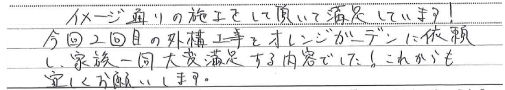 イメージ通りの施工をして頂いて満足しています!
今回2回目の外構工事をオレンジガーデンに依頼
し、家族一同大変満足する内容でした!これからも
宜しくお願いします。